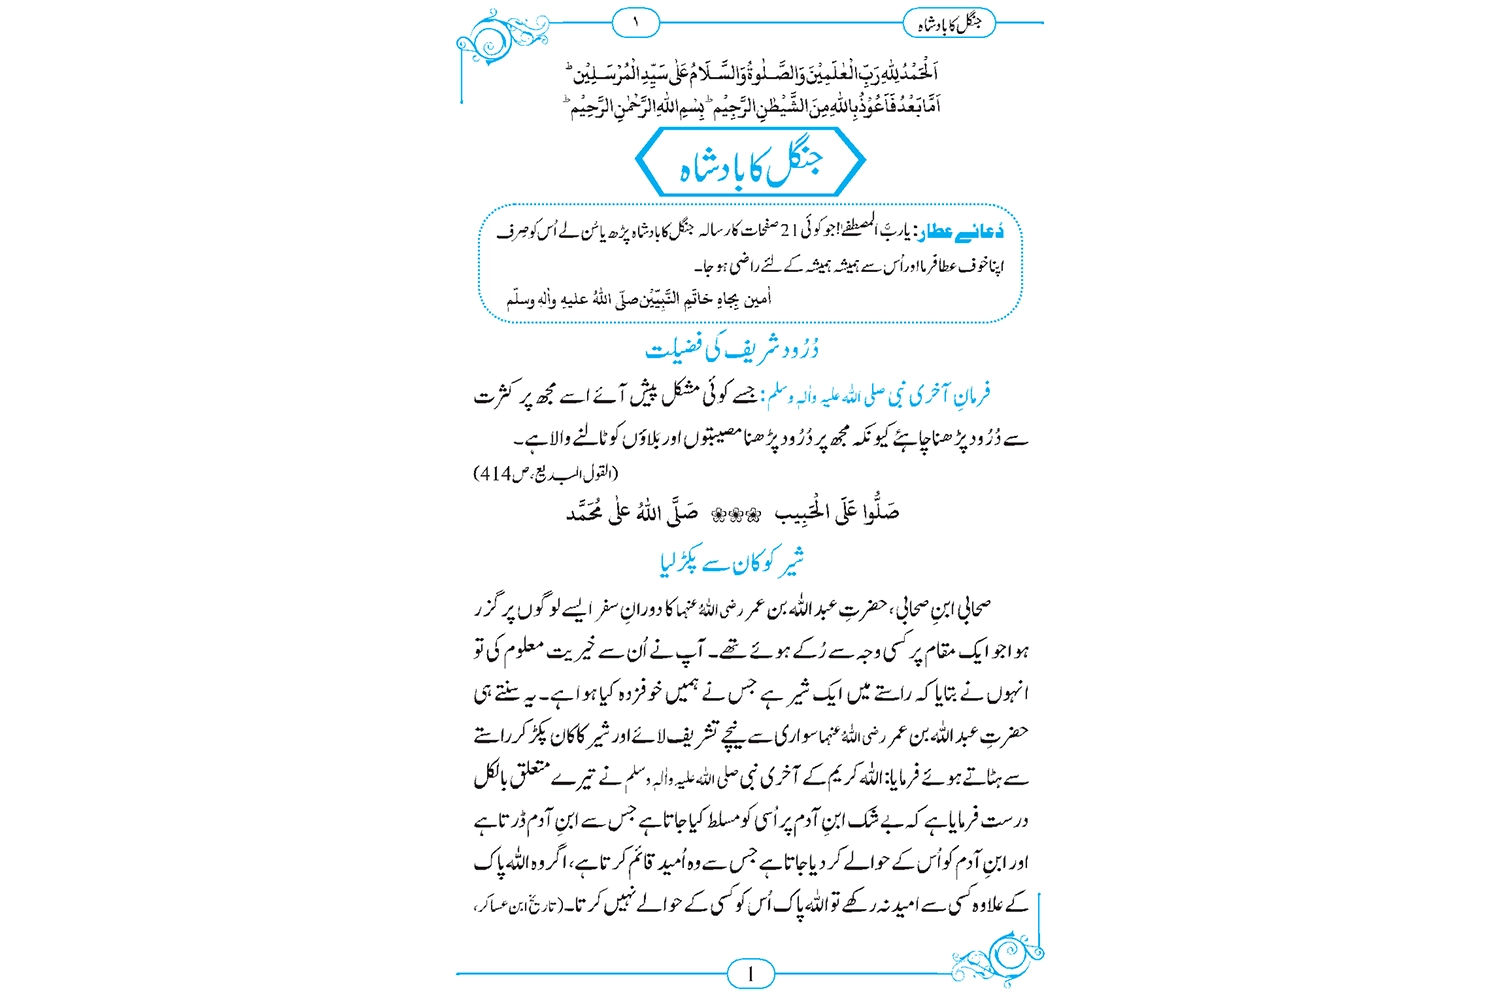 جنگل کا بادشاہ
۱
اَلْحَمْدُ لِلّٰهِ رَبِّ الْعٰلَمِیْنَ وَالصَّلٰوۃُ وَالسَّلَامُ عَلٰی سَیِّدِ الْمُرْسَلِیْن ؕ
اَمَّا بَعْدُ فَاَعُوْذُ بِاللّٰهِ مِنَ الشَّیْطٰنِ الرَّجِیْم ؕ بِسْمِ اللّٰهِ الرَّحْمٰنِ الرَّحِیْم ؕ
جنگل کا بادشاہ
دُعائے عطار: یاربَّ المصطفےٰ! جو کوئی 21 صفحات کا رسالہ جنگل کا بادشاہ پڑھ یا سُن لے اُس کو صِرف
اپنا خوف عطا فرما اور اُس سے ہمیشہ ہمیشہ کے لئے راضی ہو جا۔
اٰمین بِجاہِ خاتَمِ النَّبِیّیْن صلّی اللهُ علیهِ واٰلهٖ وسلّم
دُرُود شریف کی فضیلت
فرمانِ آخری نبی صلی اللهُ علیہ واٰلہٖ وسلم: جسے کوئی مشکل پیش آئے اسے مجھ پر کثرت
سے دُرُود پڑھنا چاہئے کیونکہ مجھ پر دُرُود پڑھنا مصیبتوں اور بَلاؤں کو ٹالنے والا ہے۔
(القولُ البدیع، ص414)
صَلُّوا عَلَی الْحَبِیب ❀❀❀ صَلَّی اللهُ علٰی مُحَمَّد
شیر کو کان سے پکڑ لیا
صحابی ابنِ صحابی، حضرتِ عبد اللہ بن عمر رضی اللهُ عنہما کا دورانِ سفر ایسے لوگوں پر گزر
ہوا جو ایک مقام پر کسی وجہ سے رُکے ہوئے تھے۔ آپ نے اُن سے خیریت معلوم کی تو
انہوں نے بتایا کہ راستے میں ایک شیر ہے جس نے ہمیں خوفزدہ کیا ہوا ہے۔ یہ سنتے ہی
حضرتِ عبد اللہ بن عمر رضی اللهُ عنہما سواری سے نیچے تشریف لائے اور شیر کا کان پکڑ کر راستے
سے ہٹاتے ہوئے فرمایا: اللہ کریم کے آخری نبی صلی اللهُ علیہ واٰلہٖ وسلم نے تیرے متعلق بالکل
درست فرمایا ہے کہ بے شک ابنِ آدم پر اُسی کو مسلط کیا جاتا ہے جس سے ابنِ آدم ڈرتا ہے
اور ابنِ آدم کو اُس کے حوالے کر دیا جاتا ہے جس سے وہ اُمید قائم کرتا ہے، اگر وہ اللہ پاک
کے علاوہ کسی سے امید نہ رکھے تو اللہ پاک اُس کو کسی کے حوالے نہیں کرتا۔ (تاریخ ابن عساکر،
1